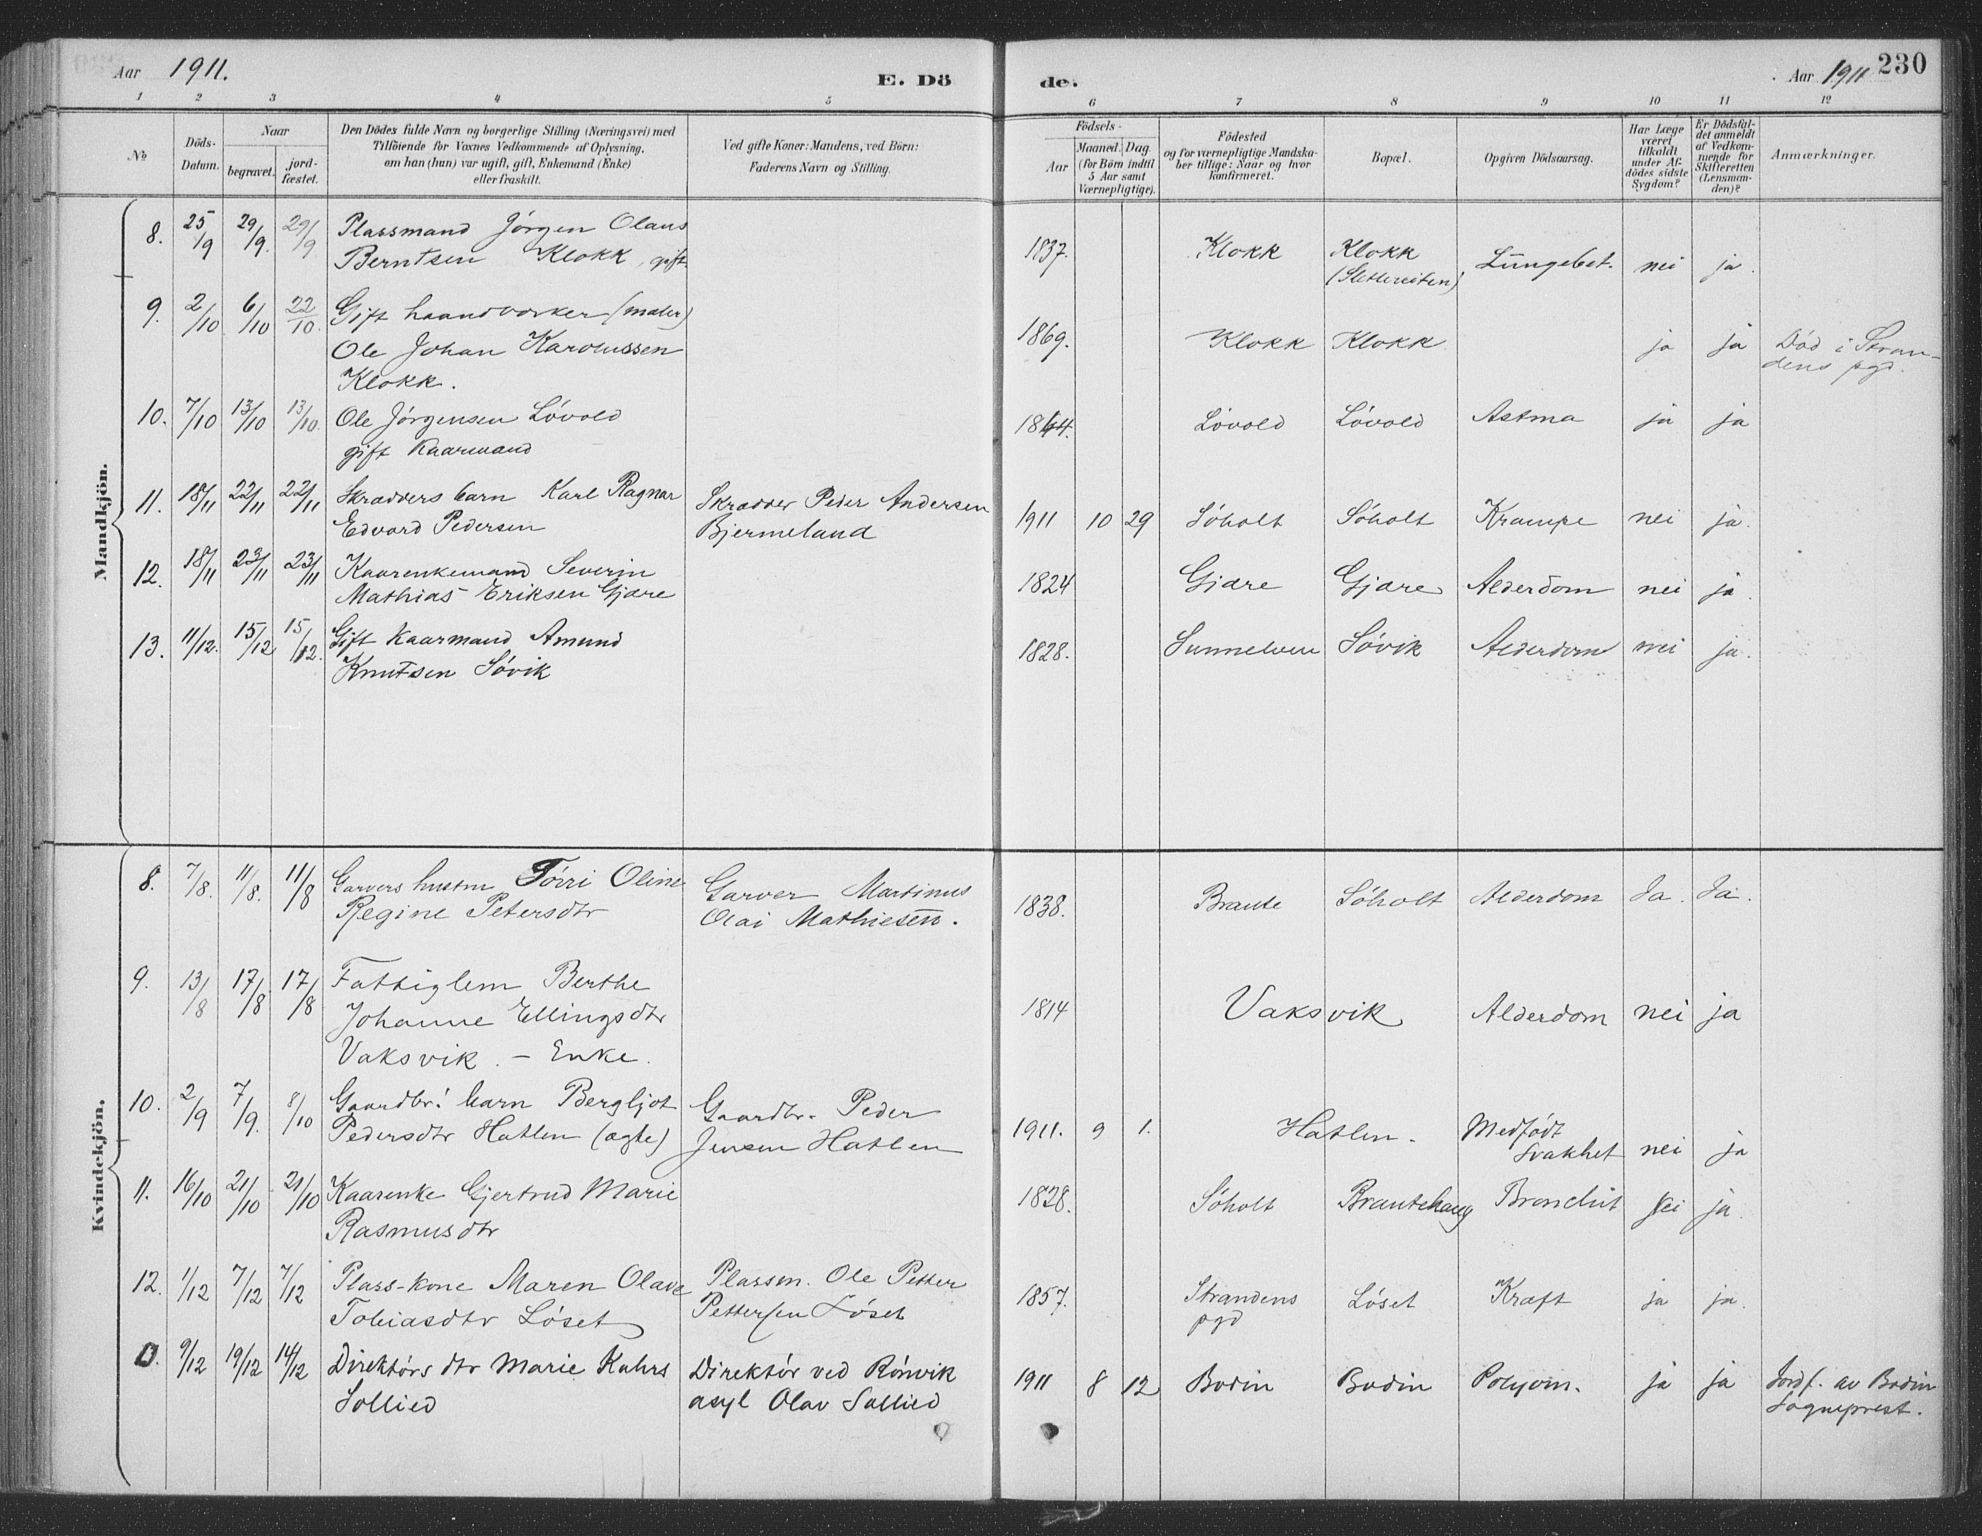 Aar 1911.
E. Dö
de.
Aar 1911 230
1 2 3 4 5 6 7 8 9 10 11 12
No
Döds-
Datum.
Naar
begravet.
jord-
fæstet.
Den Dödes fulde Navn og borgerlige Stilling (Næringsvei) med
Tilföiende for Voxnes Vedkommende af Oplysning,
om han (hun) var ugift, gift, Enkemand (Enke)
eller fraskilt.
Ved gifte Koner: Mandens, ved Börn:
Faderens Navn og Stilling.
Födsels-
Aar
Maaned. Dag.
(for Börn indtil
5 Aar samt
Værnepligtige).
Födested
og for værnepligtige Mandska-
ber tillige: Naar og hvor
konfirmeret.
Bopæl.
Opgiven Dödsaarsag.
Har Læge
været
tilkaldt
under Af-
dödes sidste
Sygdom?
Er Dödsfal-
det anmeldt
af Vedkom-
mende for
Skifteretten
(Lensman-
den)?
Anmærkninger.
Mandkjön.
8. 25/9 29/9. 29/9 Plassmand Jörgen Olaus
Berntsen Klokk, gift. 1837. Klokk Klokk
(Slettereiten) Lungebet. nei ja.
9. 2/10 6/10 22/10. Gift haandverker (maler)
Ole Johan Karolussen
Klokk. 1869. Klokk Klokk ja ja Död i Stran-
dens pgd.
10. 7/10 13/10 13/10. Ole Jörgensen Lövold
gift Kaarmand 1864. Lövold Lövold Astma ja ja
11. 18/11 22/11 22/11 Skrædders barn Karl Ragnar
Edvard Pedersen Skrædder Peder Andersen
Bjermeland 1911 10 29 Söholt Söholt Krampe nei ja.
12. 18/11 23/11 23/11 Kaarenkemand Severin
Mathias Eriksen Gjære 1824 Gjære Gjære Alderdom nei ja.
13. 11/12. 15/12 15/12. Gift Kaarmand Amund
Knutsen Sövik 1828. Sunnelven Sövik Alderdom nei ja.
Kvindekjön.
8. 7/8. 11/8. 11/8 Garvers hustru Törri Oline
Regine Petersdtr Garver Martinus
Olai Mathiesen. 1838. Braute Söholt Alderdom Ja. Ja.
9. 13/8 17/8 17/8 Fattiglem Berthe
Johanne Ellingsdtr
Vaksvik. – Enke. 1814 Vaksvik Alderdom nei ja
10. 2/9 7/9. 8/10 Gaardbr: barn Bergljot
Pedersdtr Hatlen (ægte) Gaardbr. Peder
Jensen Hatlen 1911. 9 1. Hatlen. Medfödt
svakhet nei ja
11. 16/10 21/10 21/10 Kaarenke Gjertrud Marie
Rasmusdtr 1828. Söholt Brautehaug Bronchit nei ja.
12. 1/12 7/12 7/12 Plass-kone Maren Olave
Tobiasdtr Löset Plassm. Ole Petter
Pettersen Löset 1857. Strandens
pgd Löset Kræft ja ja.
0. 9/12 19/12 14/12 Direktörs dtr Marie Kahrs
Sollied Direktör ved Rönvik
asyl Olav Sollied 1911 8 12 Bodin Bodin ja ja Jordf. av Bodin
Sogneprest.